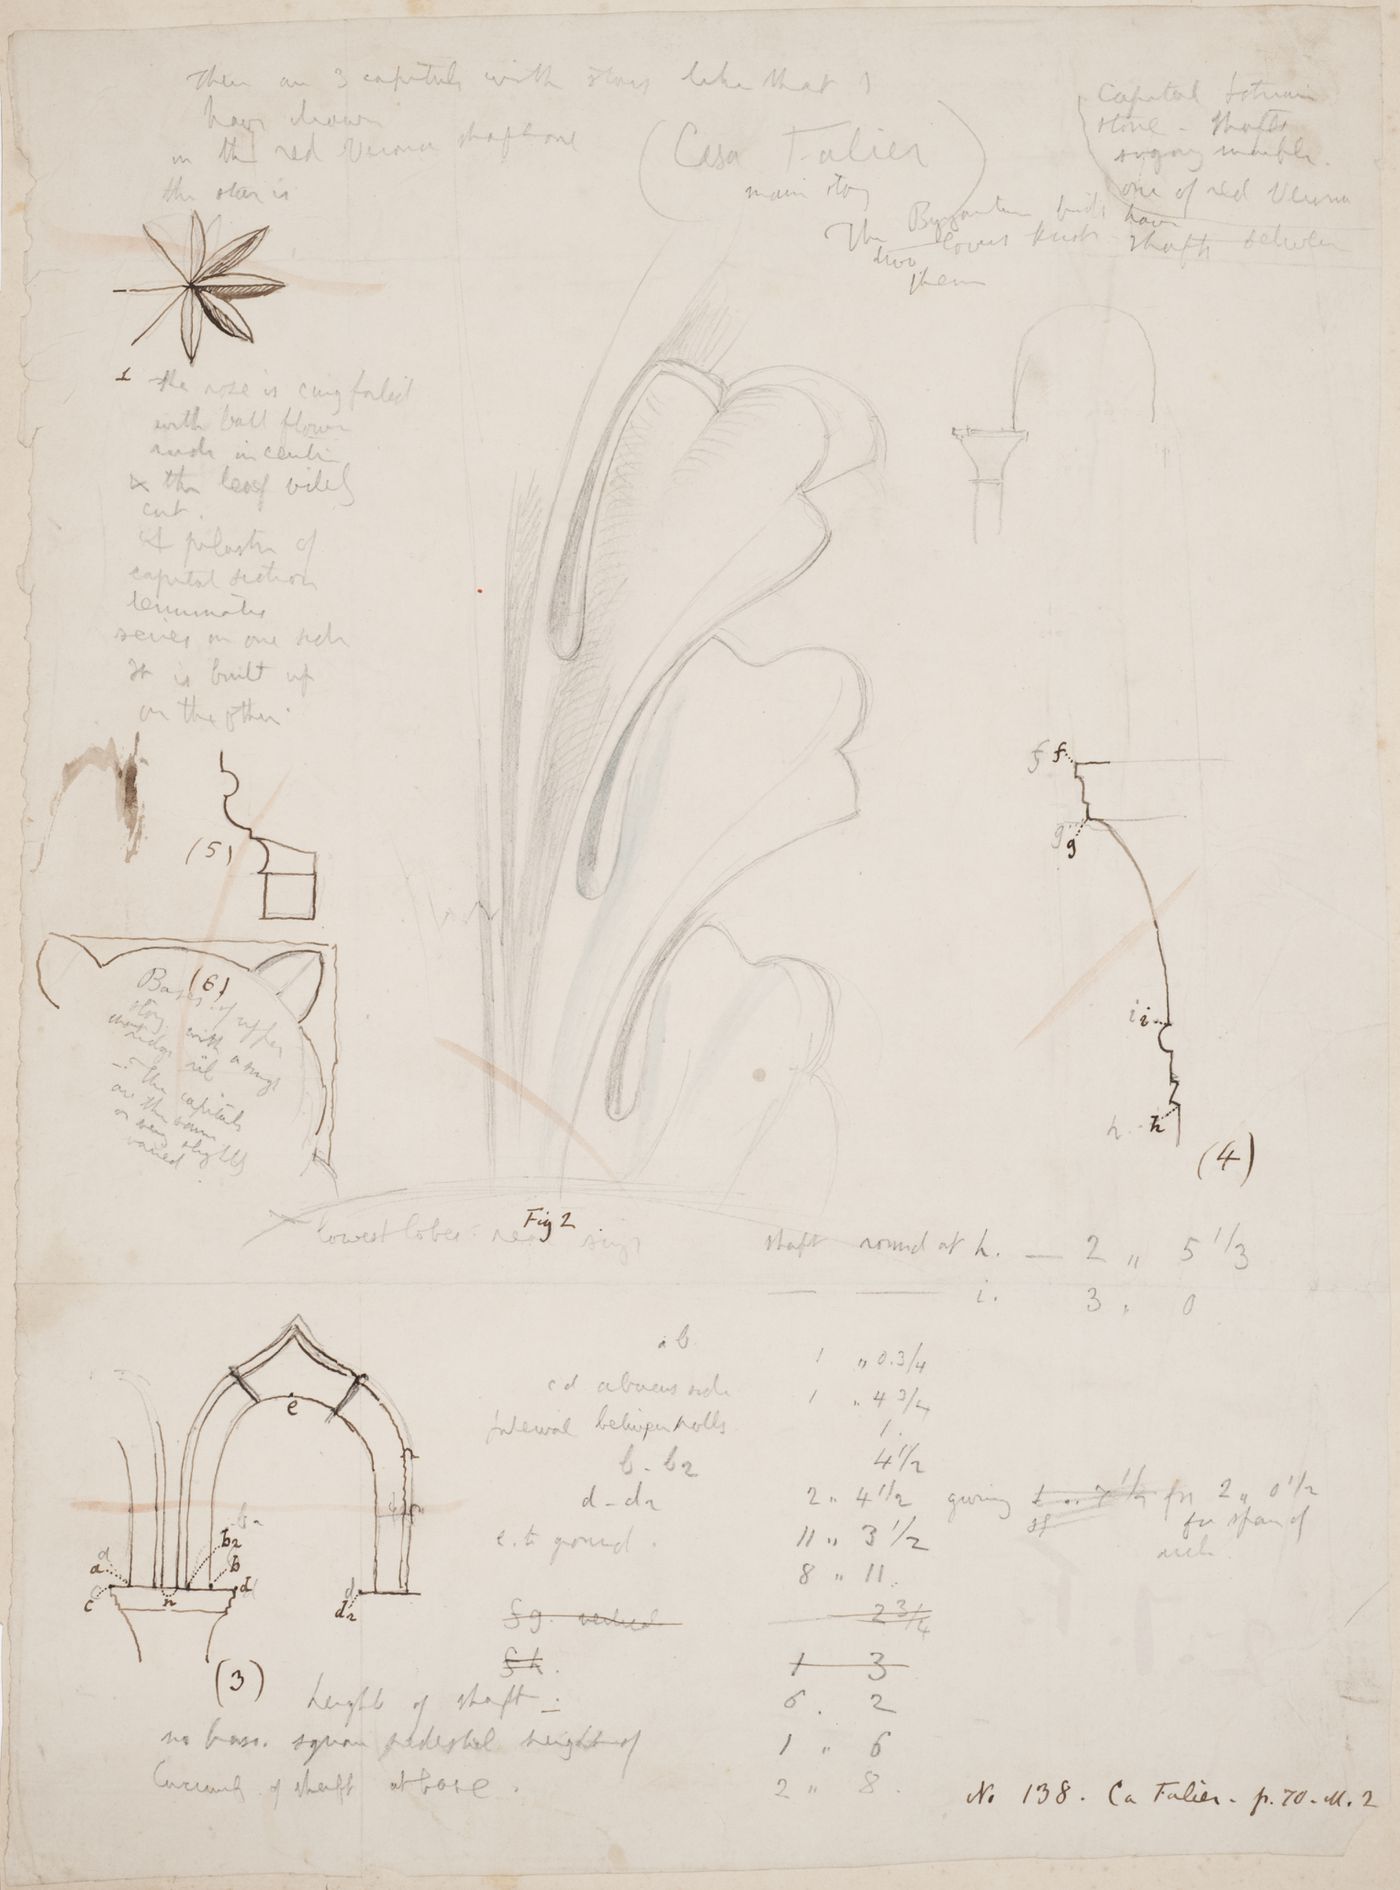 There are 3 capitals with stars like that I
have drawn
in the red Verona shaft one
the star is
(Casa Falier)
main story
Capital Istrian
stone - shafts
sugary marble.
one of red Verona
The Byzantine birds have
two lower shafts between
them
1 the rose is cinqfoiled
with ball flower
in centre
& the leaf vilely
cut.
A pilaster of
capital section
terminates
series on one side
It is built up
on the other.
(5)
(6)
Bases of upper
story with a
ridge
- the capitals
are the same
or very slightly
varied
f f
g g
i i
h h
(4)
Fig 2
lowest lobes
shaft round at h. — 2 " 5 1/3
— — i. 3 " 0
a b 1 " 0.3/4
c d abacus side 1 " 4 3/4
Interval between rolls 1.
b - b2 4 1/2
d - d2 2 " 4 1/2 giving for 2 " 0 1/2
for span of
arch
e. to ground. 11 " 3 1/2
8 " 11.
f g. vertical 2 3/4
f h. 1 3
height of shaft - 6. 2
no base. square pedestal height of 1 " 6
Circumf. of shaft at base. 2 " 8.
e
b2
b
a d
c n d
d
d2
(3)
No 138. Ca Falier - p. 70 - M. 2